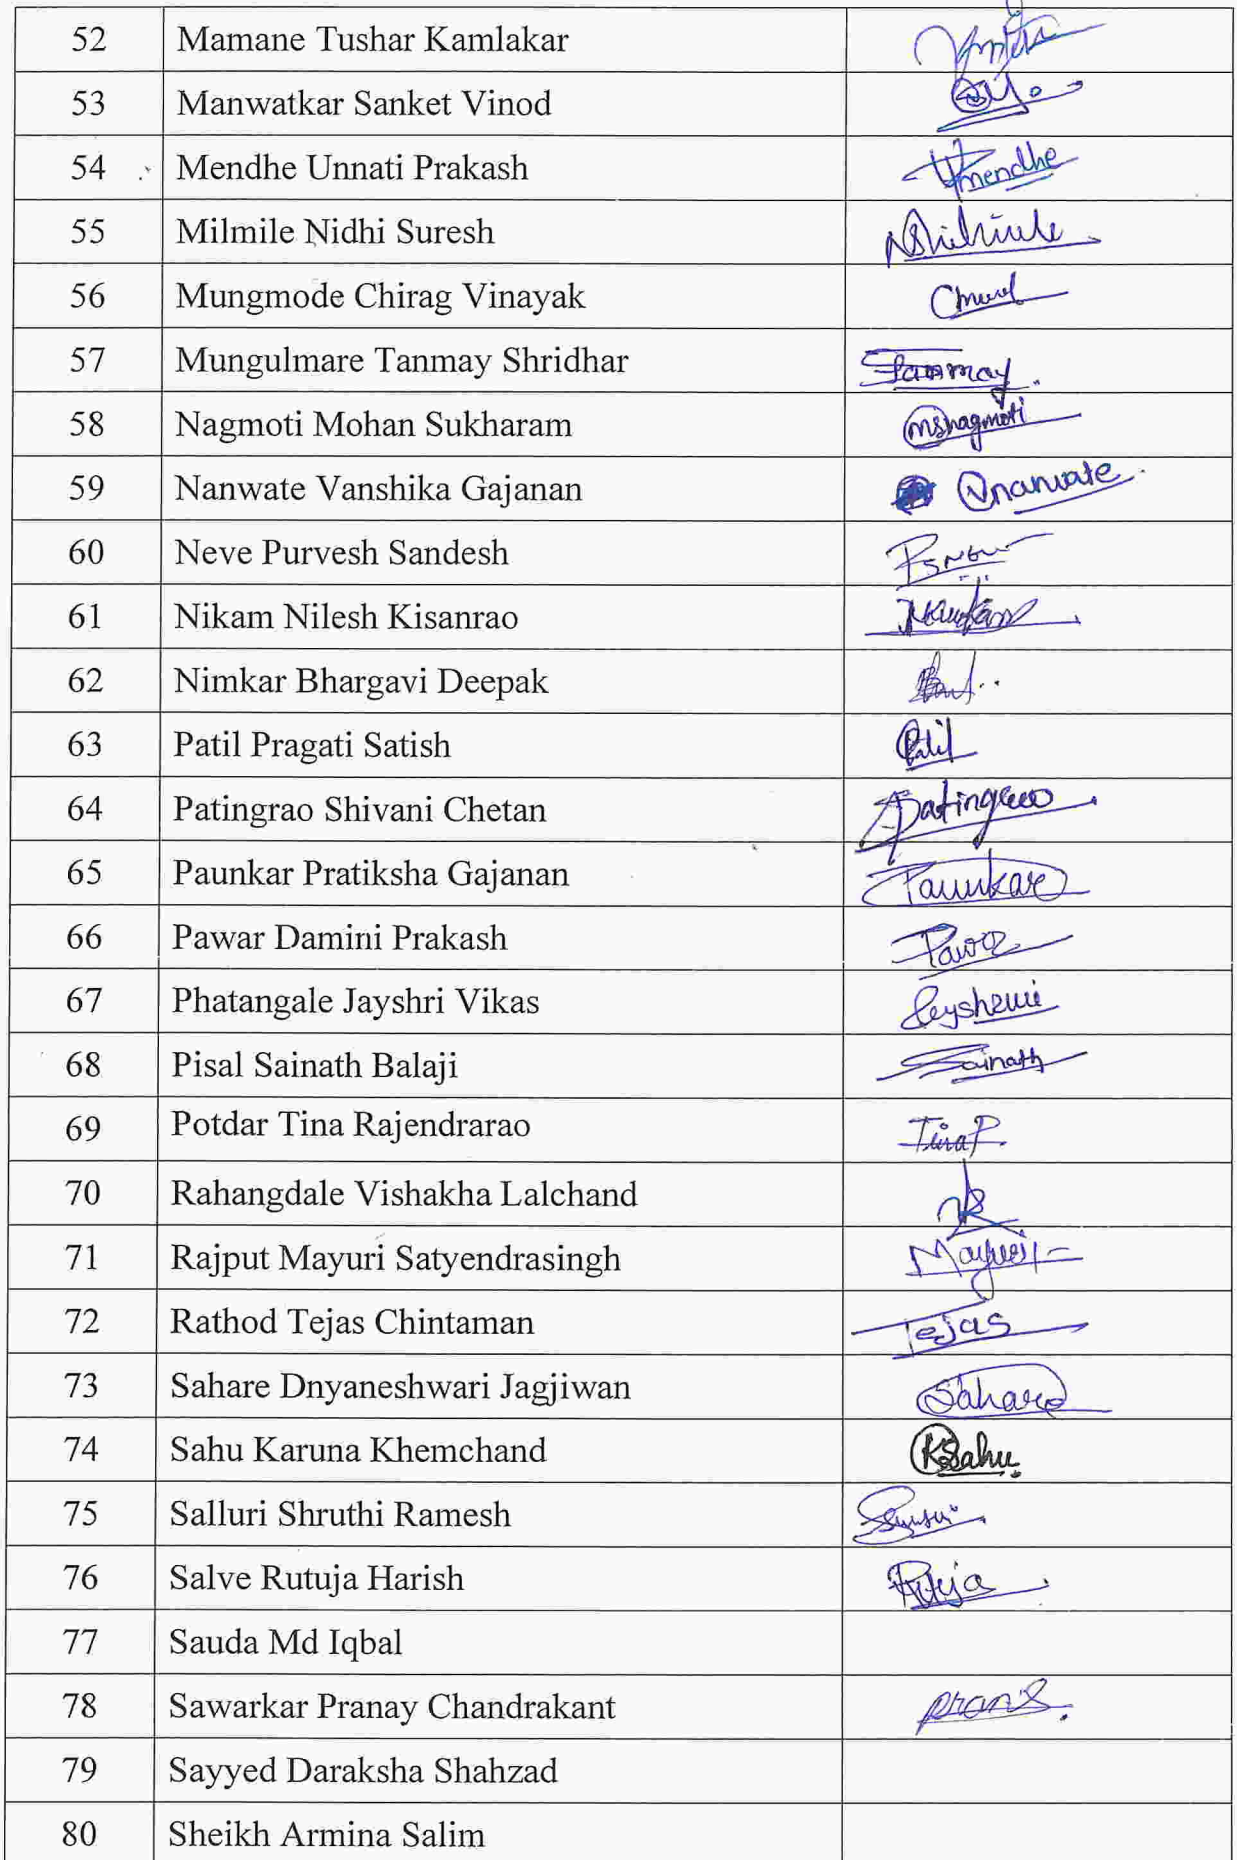 52 Mamane Tushar Kamlakar
53 Manwatkar Sanket Vinod
54 Mendhe Unnati Prakash Umendhe
55 Milmile Nidhi Suresh
56 Mungmode Chirag Vinayak
57 Mungulmare Tanmay Shridhar Tanmay
58 Nagmoti Mohan Sukharam msnagmoti
59 Nanwate Vanshika Gajanan Vnanwate
60 Neve Purvesh Sandesh
61 Nikam Nilesh Kisanrao
62 Nimkar Bhargavi Deepak
63 Patil Pragati Satish Patil
64 Patingrao Shivani Chetan SPatingrao
65 Paunkar Pratiksha Gajanan Paunkar
66 Pawar Damini Prakash Pawar
67 Phatangale Jayshri Vikas
68 Pisal Sainath Balaji Sainath
69 Potdar Tina Rajendrarao Tina P.
70 Rahangdale Vishakha Lalchand
71 Rajput Mayuri Satyendrasingh Mayuri
72 Rathod Tejas Chintaman Tejas
73 Sahare Dnyaneshwari Jagjiwan Sahare
74 Sahu Karuna Khemchand KSahu
75 Salluri Shruthi Ramesh
76 Salve Rutuja Harish
77 Sauda Md Iqbal
78 Sawarkar Pranay Chandrakant
79 Sayyed Daraksha Shahzad
80 Sheikh Armina Salim